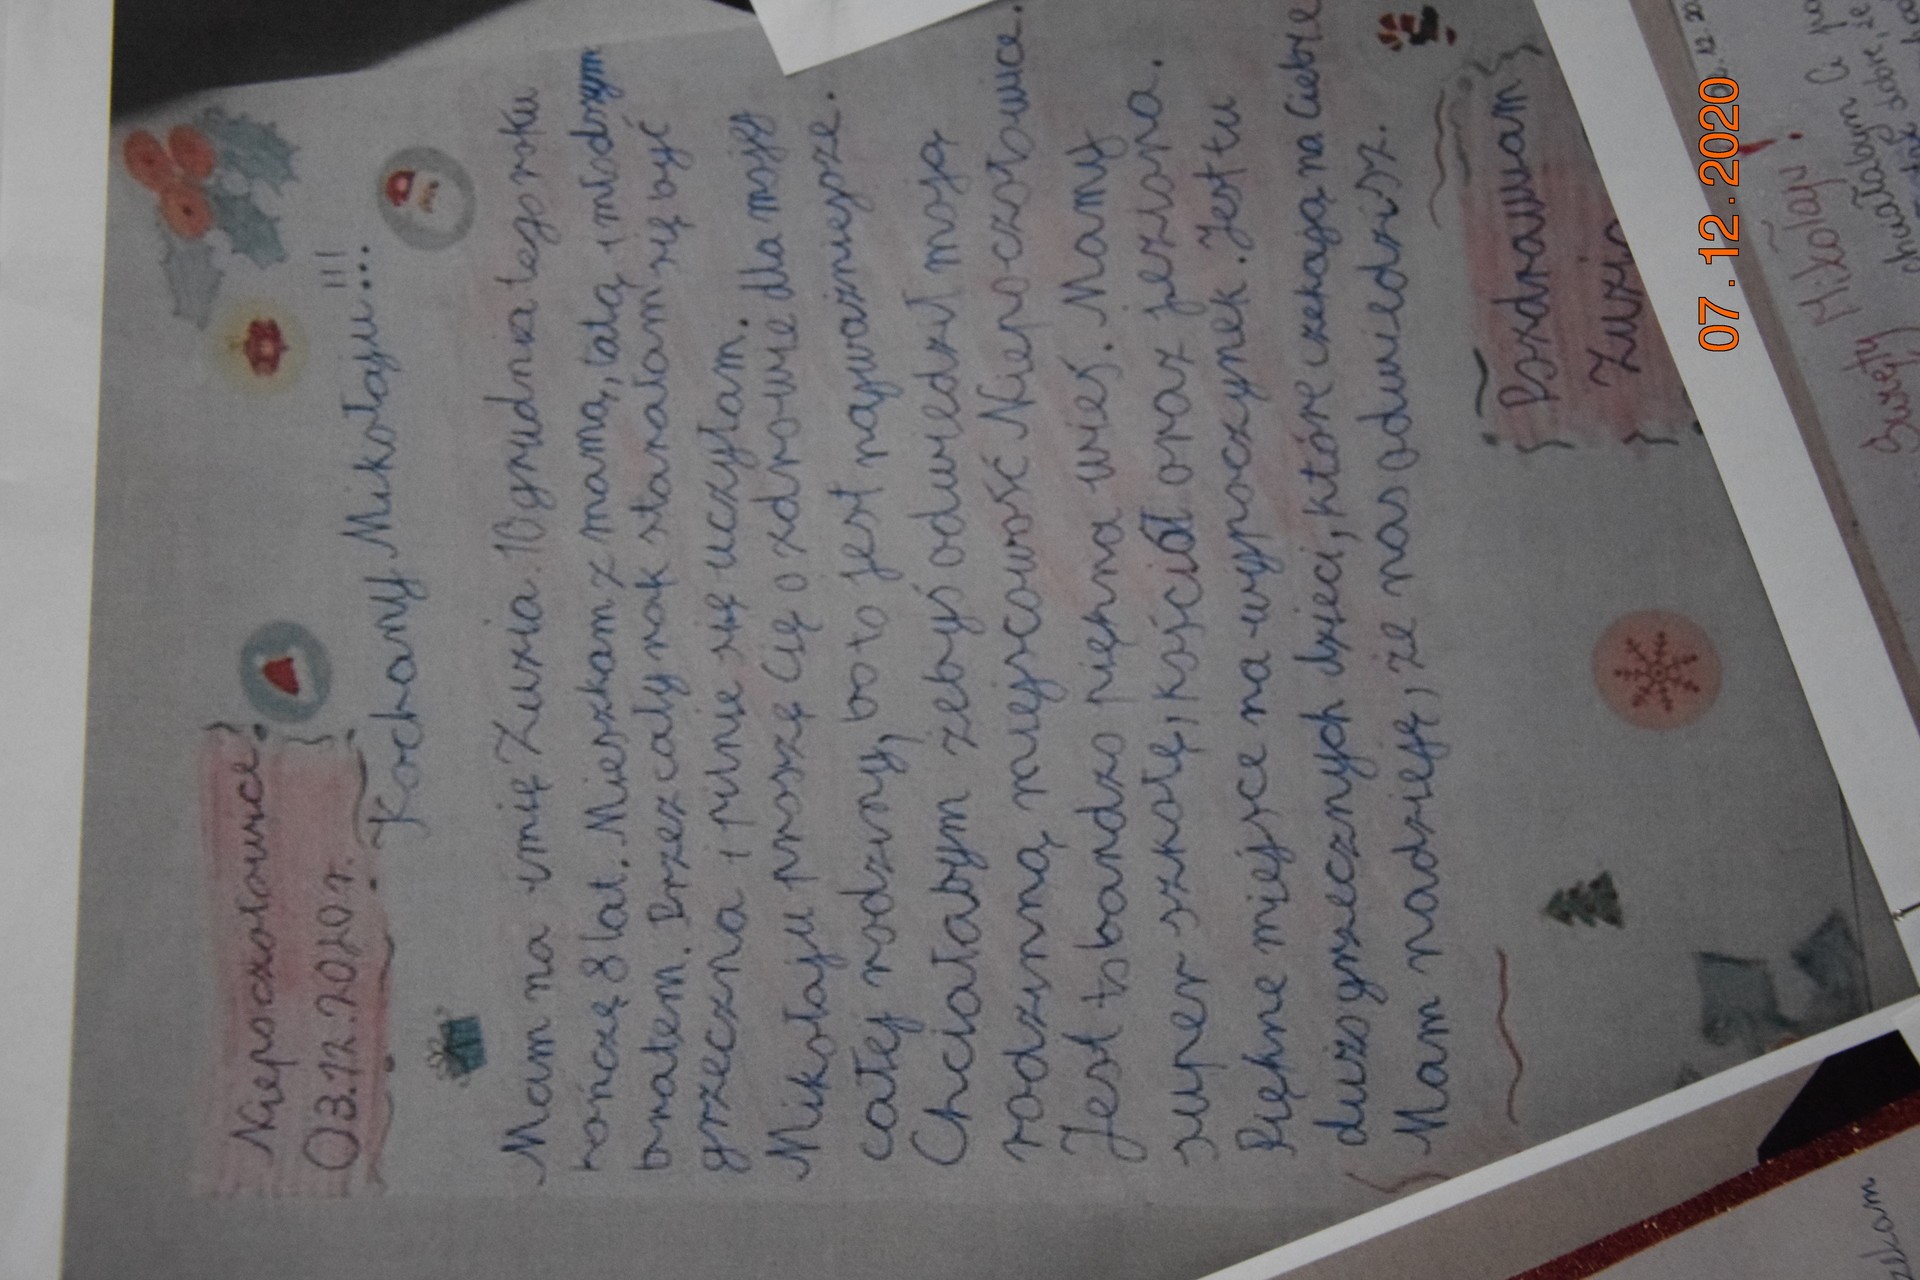 Niepoczołowice
03.12.2020r.
Kochany Mikołaju...!!!
Mam na imię Zuzia. 10 grudnia tego roku
kończę 8 lat. Mieszkam z mamą, tatą i młodszym
bratem. Przez cały rok starałam się być
grzeczna i pilnie się uczyłam.
Mikołaju proszę Cię o zdrowie dla mojej
całej rodziny, bo to jest najważniejsze.
Chciałabym żebyś odwiedził moją
rodzinną miejscowość Niepoczołowice.
Jest to bardzo piękna wieś. Mamy
super szkołę, kościół oraz jeziora.
Piękne miejsce na wypoczynek. Jest tu
dużo grzecznych dzieci, które czekają na Ciebie
Mam nadzieję, że nas odwiedzisz.
Pozdrawiam
Zuzia
07.12.2020
12.20
Święty Mikołaju!
chciałabym Ci
zkam